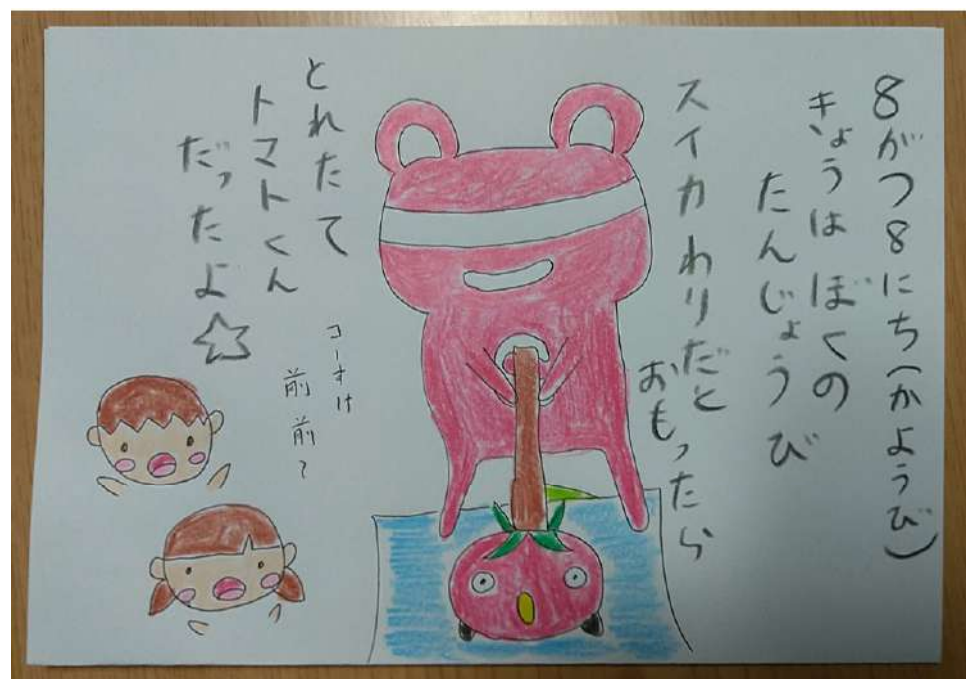 8がつ8にち(かようび)
きょうはぼくの
たんじょうび
スイカわりだと
おもったら
とれたて
トマトくん
だったよ☆
コースケ
前前~